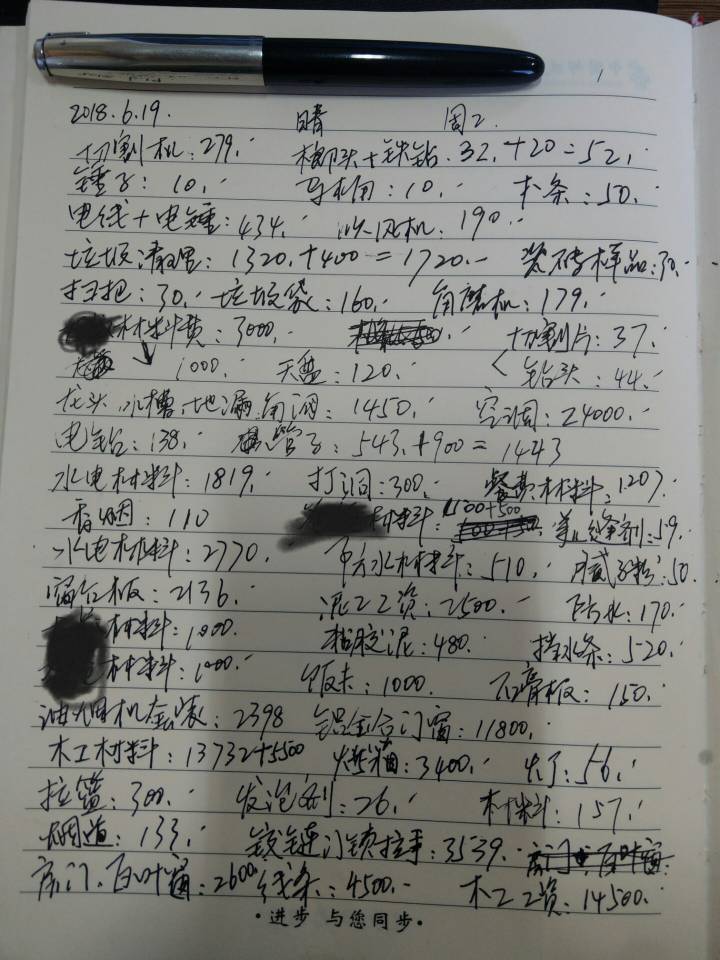 2018.6.19. 晴 周2.
切割机:279. 榔头+铁钻.32.+20=52.
锤子:10. 马桶:10. 木条:50.
电线+电锤:434. 吹风机:190.
垃圾清理:1320.+400=1720. 瓷砖样品:30.
扫把:30. 垃圾袋:160. 角磨机:179.
材料费:3000. 切割片:37.
1000. 天盘:120. 钻头:44.
龙头.水槽.地漏.角阀:1450. 空调:24000.
电钻:138. 管子:543.+900=1443
水电材料:1819. 打洞:300. 材料:1207.
香烟:110 材料:1500+500 美缝剂:59.
水电材料:2770. 防水材料:510. 腻子粉:50.
窗台板:2136. 泥工工资:2500. 防水:170.
材料:1000. 粘胶泥:480. 挡水条:520.
材料:1000. 饭末:1000. 石膏板:150.
油烟机套装:2398 铝合金门窗:11800.
木工材料:13732+5500 烤箱:3400. 灯:56.
拉篮:300. 发泡剂:26. 材料:157.
烟道:133. 铰链门锁拉手:3539.
房门.百叶窗:2600 线条:4500. 木工工资:14500.
·进步 与您同步·